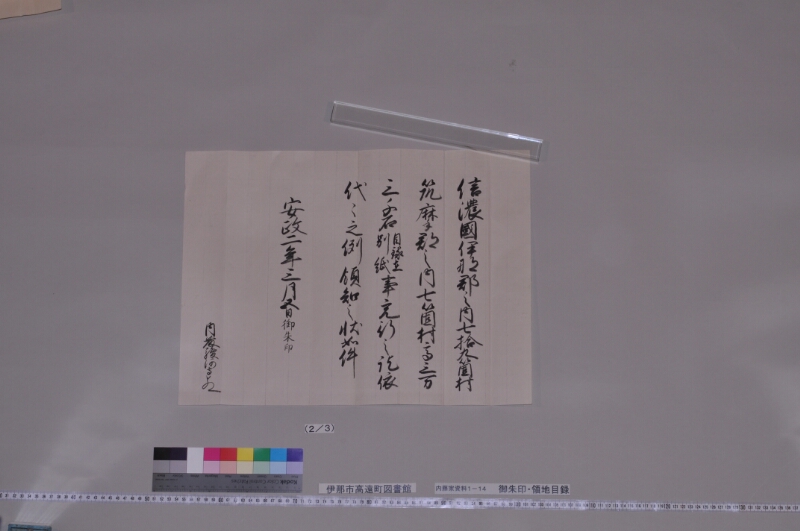 信濃國伊那郡之内七拾九箇村
筑麻郡之内七箇村高三万
三千石目録在別紙事充行之訖依
代々之例領知之状如件
安政二年三月五日御朱印
内藤
(2/3)
伊那市高遠町図書館
内藤家資料1-14
御朱印・領地目録